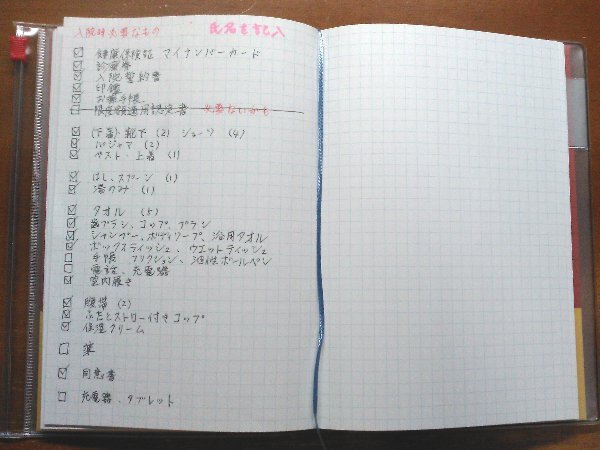 入院時必要なもの 氏名を記入
☑ 健康保険証 マイナンバーカード
☑ 診察券
☑ 入院誓約書
☑ 印鑑
☑ お薬手帳
☐ 限度額適用認定書 必要ないかも
☑ (下着)・靴下 (2) ショーツ (4)
☑ パジャマ (2)
☑ ベスト・上着 (1)
☑ はし、スプーン (1)
☑ 湯のみ (1)
☑ タオル (5)
☑ 歯ブラシ、コップ、ブラシ
☑ シャンプー、ボディソープ、浴用タオル
☑ ボックスティッシュ、ウエットティッシュ
☐ 手帳 フリクション、油性ボールペン
☐ 電話、充電器
☑ 室内履き
☑ 腹帯 (2)
☑ ふたとストロー付きコップ
☑ 保湿クリーム
☐ 薬
☑ 同意書
☐ 充電器、タブレット